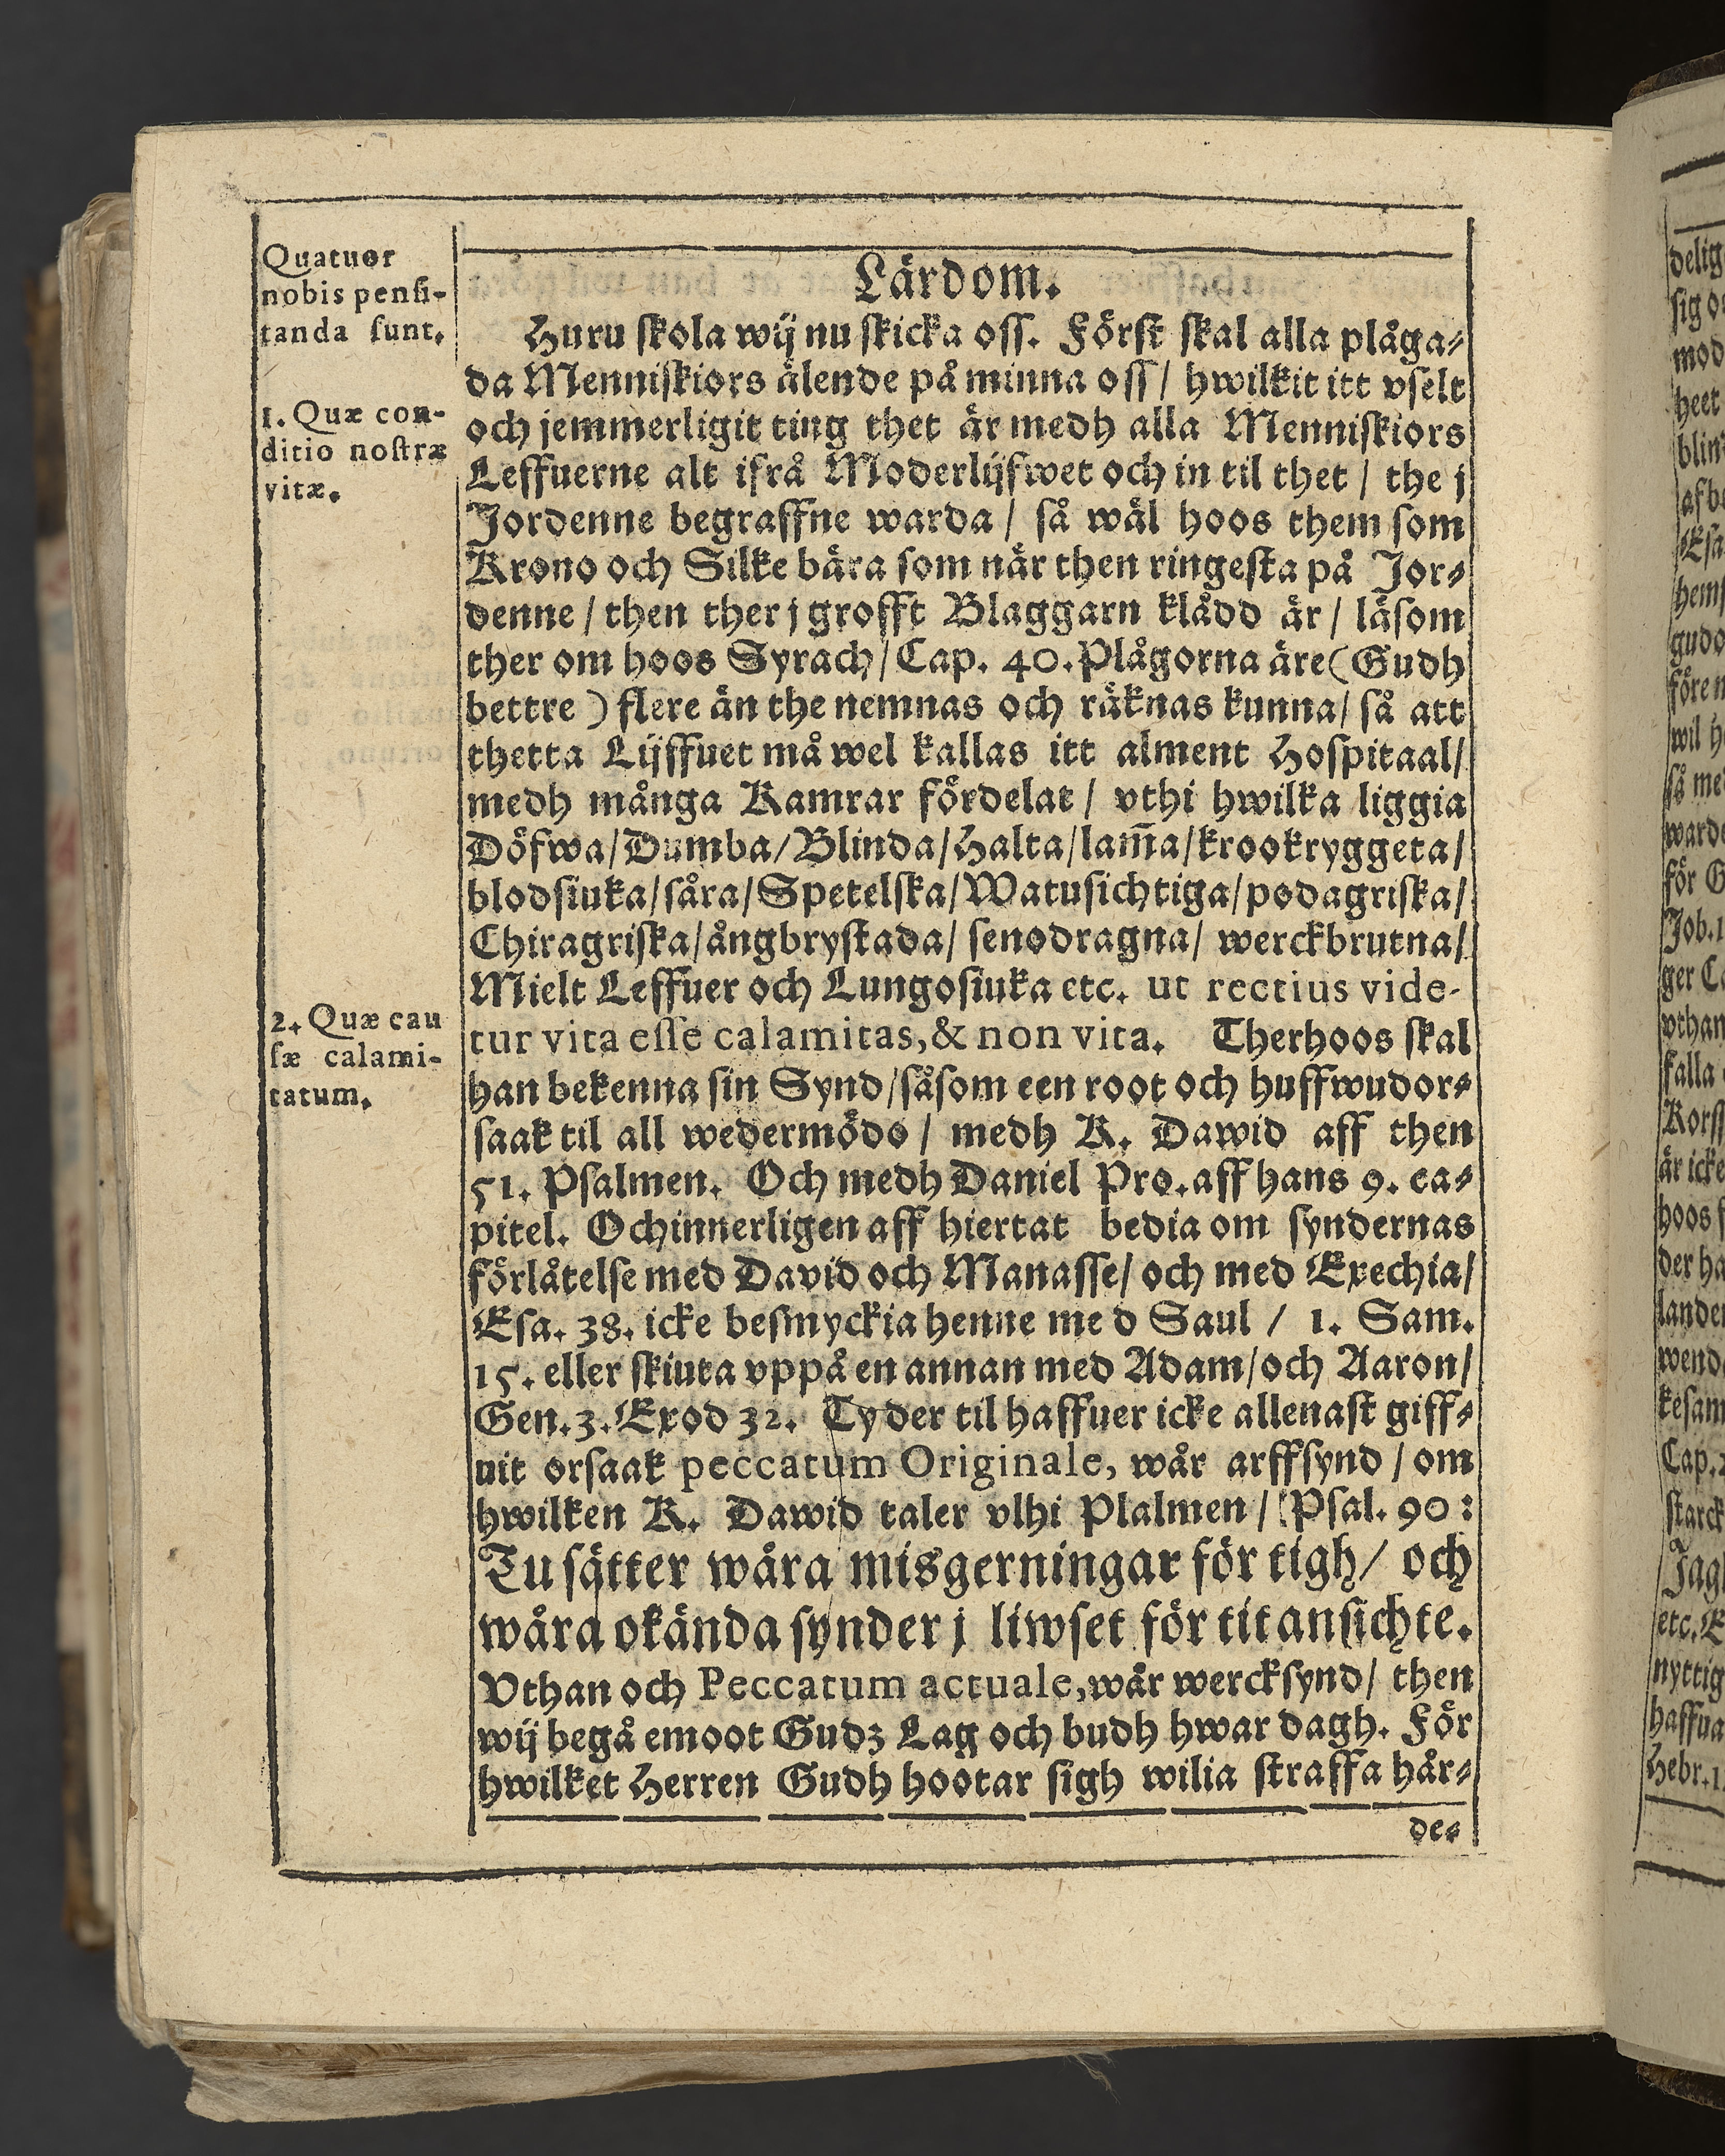 Quatuor
nobis pensi-
tanda sunt.
1. Quæ con-
ditio nostræ
vitæ.
2. Quæ cau
sæ calami-
tatum.
Lärdom.
Huru skola wij nu skicka oss. Först skal alla plåga-
da Menniskiors älende på minna oss / hwilkit itt vselt
och jemmerligit ting thet är medh alla Menniskiors
Leffuerne alt ifrå Moderlijfwet och in til thet / the j
Jordenne begraffne warda / så wäl hoos them som
Krono och Silke bära som när then ringesta på Jor-
denne / then ther j grofft Blaggarn klädd är / läsom
ther om hoos Syrach / Cap. 40. Plågorna äre (Gudh
bettre ) flere än the nemnas och räknas kunna / så att
thetta Lijffuet må wel kallas itt alment Hospitaal /
medh många Kamrar fördelat / vthi hwilka liggia
Döfwa / Dumba / Blinda / Halta / lam̃a / krookryggeta /
blodsiuka / såra / Spetelska / Watusichtiga / podagriska /
Chiragriska / ångbrystada / senodragna / werckbrutna /
Mielt Leffuer och Lungosiuka etc. ut rectius vide-
tur vita esse calamitas, & non vita. Therhoos skal
han bekenna sin Synd / såsom een root och huffwudor-
saak til all wedermödo / medh K. Dawid aff then
51. Psalmen. Och medh Daniel Pro. aff hans 9. ca-
pitel. Ochinnerligen aff hiertat bedia om syndernas
förlåtelse med David och Manasse / och med Exechia /
Esa. 38. icke besmyckia henne me d Saul / 1. Sam.
15. eller skiuta vppå en annan med Adam / och Aaron /
Gen. 3. Exod 32. Ty der til haffuer icke allenast giff-
uit orsaak peccatum Originale, wår arffsynd / om
hwilken K. Dawid taler vlhi Plalmen / Psal. 90:
Tu sätter wåra misgerningar för tigh / och
wåra okända synder j liwset för tit ansichte.
Vthan och Peccatum actuale, wår wercksynd / then
wij begå emoot Gudz Lag och budh hwar dagh. För
hwilket Herren Gudh hootar sigh wilia straffa hår-
de-